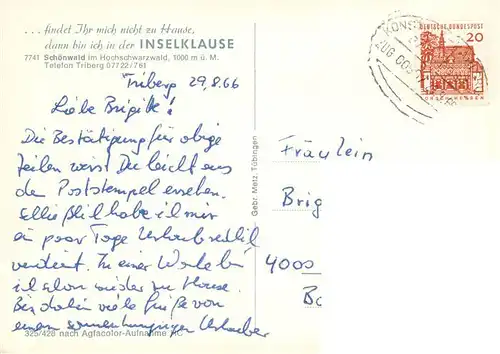 ... findet Ihr mich nicht zu Hause,
dann bin ich in der INSELKLAUSE
7741 Schönwald im Hochschwarzwald, 1000 m ü. M.
Telefon Triberg 07722/761
Triberg 29.8.66
Liebe Brigitte!
Die Bestätigung für obige
Zeilen wirst Du leicht aus
dem Poststempel ersehen.
Schließlich habe ich mir
ein paar Tage Urlaub redlich
verdient. In einer Woche bin
ich schon wieder zu Hause.
Bis dahin viele Grüße von
einem sonnenhungrigen Urlauber
325/428 nach Agfacolor-Aufnahme
Gebr. Metz, Tübingen
DEUTSCHE BUNDESPOST
20
LORSCH/HESSEN
KONST
ZUG 00
Fräulein
Brig
4000